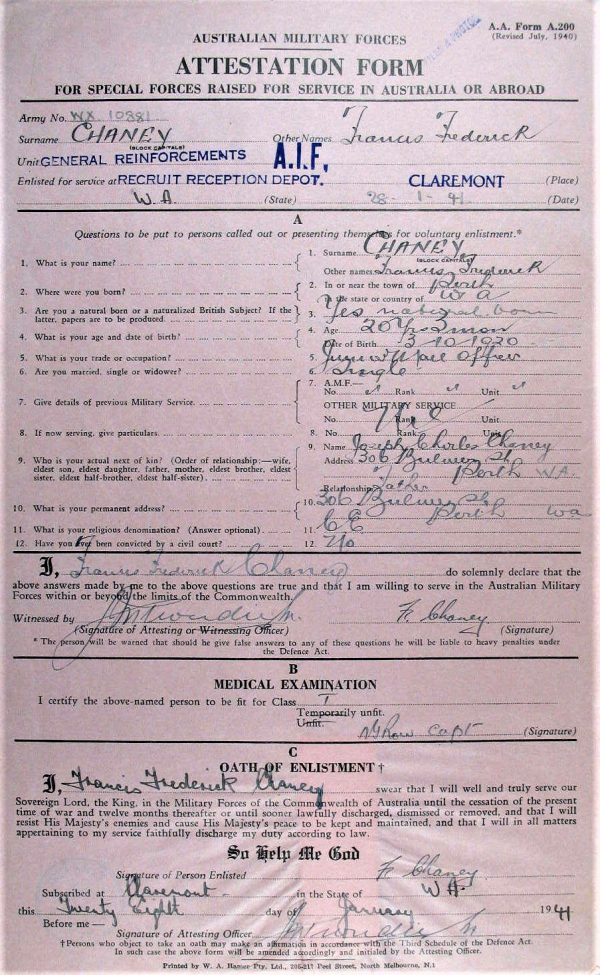 A.A. Form A.200
(Revised July, 1940)
AUSTRALIAN MILITARY FORCES
ATTESTATION FORM
FOR SPECIAL FORCES RAISED FOR SERVICE IN AUSTRALIA OR ABROAD
Army No. WX 10381
Surname CHANEY Other Names Francis Frederick
(BLOCK CAPITALS)
Unit GENERAL REINFORCEMENTS A.I.F.
Enlisted for service at RECRUIT RECEPTION DEPOT. CLAREMONT (Place)
W.A. (State) 28-1-41 (Date)
A
Questions to be put to persons called out or presenting themselves for voluntary enlistment.*
1. What is your name? 1. Surname CHANEY
(BLOCK CAPITALS)
Other names Francis Frederick
2. Where were you born? 2. In or near the town of Perth
In the state or country of WA
3. Are you a natural born or a naturalized British Subject? If the latter, papers are to be produced. 3. Yes natural born
4. What is your age and date of birth? 4. Age 20 Yrs 3 mon
Date of Birth 3/10/1920
5. What is your trade or occupation? 5. Mail Officer
6. Are you married, single or widower? 6. Single
7. Give details of previous Military Service 7. A.M.F.—
No. " Rank " Unit "
OTHER MILITARY SERVICE
No. Rank Unit
Nil
8. If now serving, give particulars. 8. No. Rank Unit
9. Who is your actual next of kin? (Order of relationship:—wife, eldest son, eldest daughter, father, mother, eldest brother, eldest sister, eldest half-brother, eldest half-sister) 9. Name Joseph Charles Chaney
Address 306 Bulwer St
Perth WA.
Relationship Father
10. What is your permanent address? 10. 306 Bulwer St
Perth WA
11. What is your religious denomination? (Answer optional). 11. CE
12. Have you ever been convicted by a civil court? 12. No
I, Francis Frederick Chaney do solemnly declare that the
above answers made by me to the above questions are true and that I am willing to serve in the Australian Military
Forces within or beyond the limits of the Commonwealth.
Witnessed by F. Chaney
(Signature of Attesting or Witnessing Officer) (Signature)
* The person will be warned that should he give false answers to any of these questions he will be liable to heavy penalties under
the Defence Act.
B
MEDICAL EXAMINATION
I certify the above-named person to be fit for Class I
Temporarily unfit.
Unfit.
Capt (Signature)
C
OATH OF ENLISTMENT †
I, Francis Frederick Chaney swear that I will well and truly serve our
Sovereign Lord, the King, in the Military Forces of the Commonwealth of Australia until the cessation of the present
time of war and twelve months thereafter or until sooner lawfully discharged, dismissed or removed, and that I will
resist His Majesty's enemies and cause His Majesty's peace to be kept and maintained, and that I will in all matters
appertaining to my service faithfully discharge my duty according to law.
So Help Me God
Signature of Person Enlisted F. Chaney
Subscribed at Claremont in the State of WA.
this Twenty Eight day of January 1941
Before me —
Signature of Attesting Officer
† Persons who object to take an oath may make an affirmation in accordance with the Third Schedule of the Defence Act.
In such case the above form will be amended accordingly and initialed by the Attesting Officer.
Printed by W. A. Hamer Pty. Ltd., 205-217 Peel Street, North Melbourne, N.1